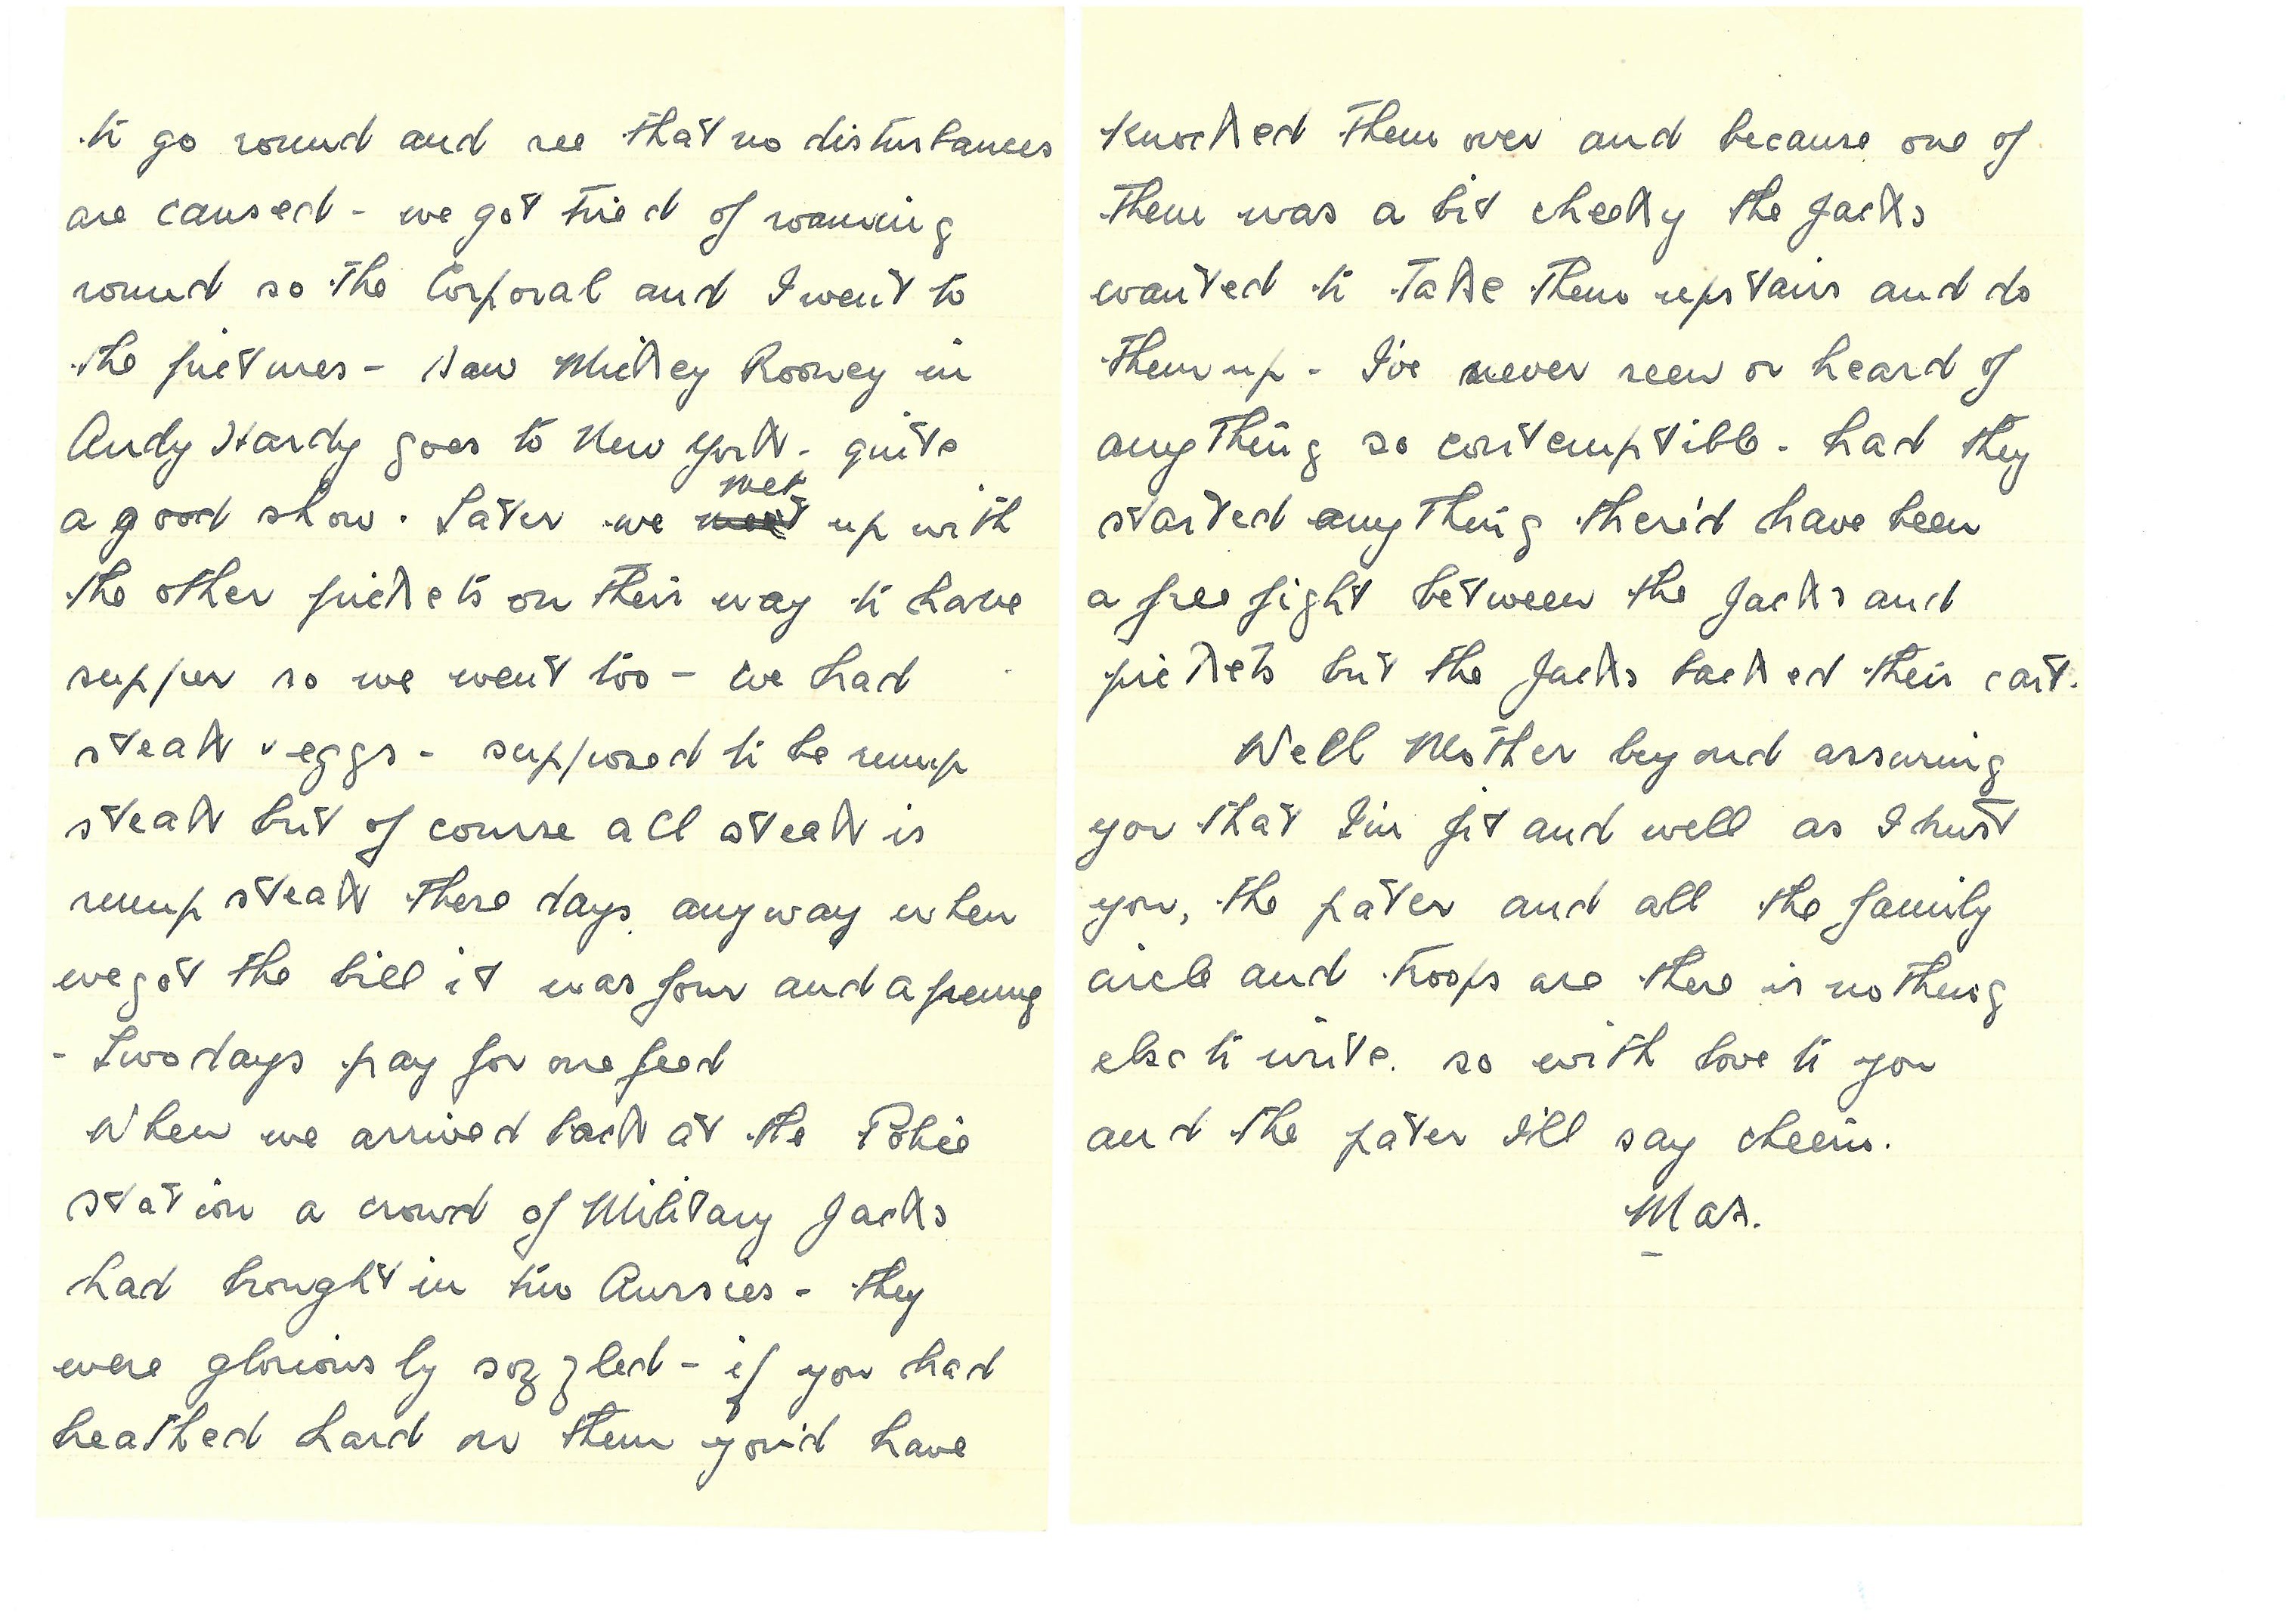 to go round and see that no disturbances
are caused - we got tired of roaming
round so the Corporal and I went to
the pictures - saw Mickey Rooney in
Andy Hardy goes to New York - quite
a good show. Later we met up with
the other pickets on their way to have
supper so we went too - we had
steak & eggs - supposed to be rump
steak but of course all steak is
rump steak these days. anyway when
we got the bill it was four and a penny
- Two days pay for one feed
When we arrived back at the Police
station a crowd of Military Jacks
had brought in two Aussies - they
were gloriously sozzled - if you had
breathed hard on them you'd have
knocked them over and because one of
them was a bit cheeky the Jacks
wanted to take them upstairs and do
them up - I've never seen or heard of
anything so contemptible - had they
started anything there'd have been
a free fight between the Jacks and
pickets but the Jacks backed their cart.
Well Mother beyond assuring
you that I'm fit and well as I trust
you, the pater and all the family
circle and troops are there is nothing
else to write. so with love to you
and the pater I'll say cheerio.